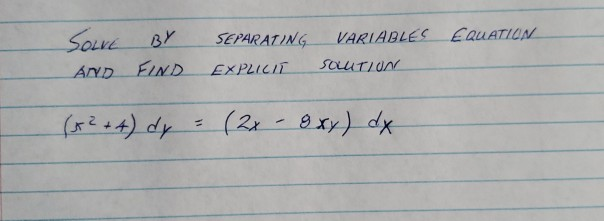 SOLVE BY SEPARATING VARIABLES EQUATION
AND FIND EXPLICIT SOLUTION
(x² + 4) dy = (2x - 8xy) dx